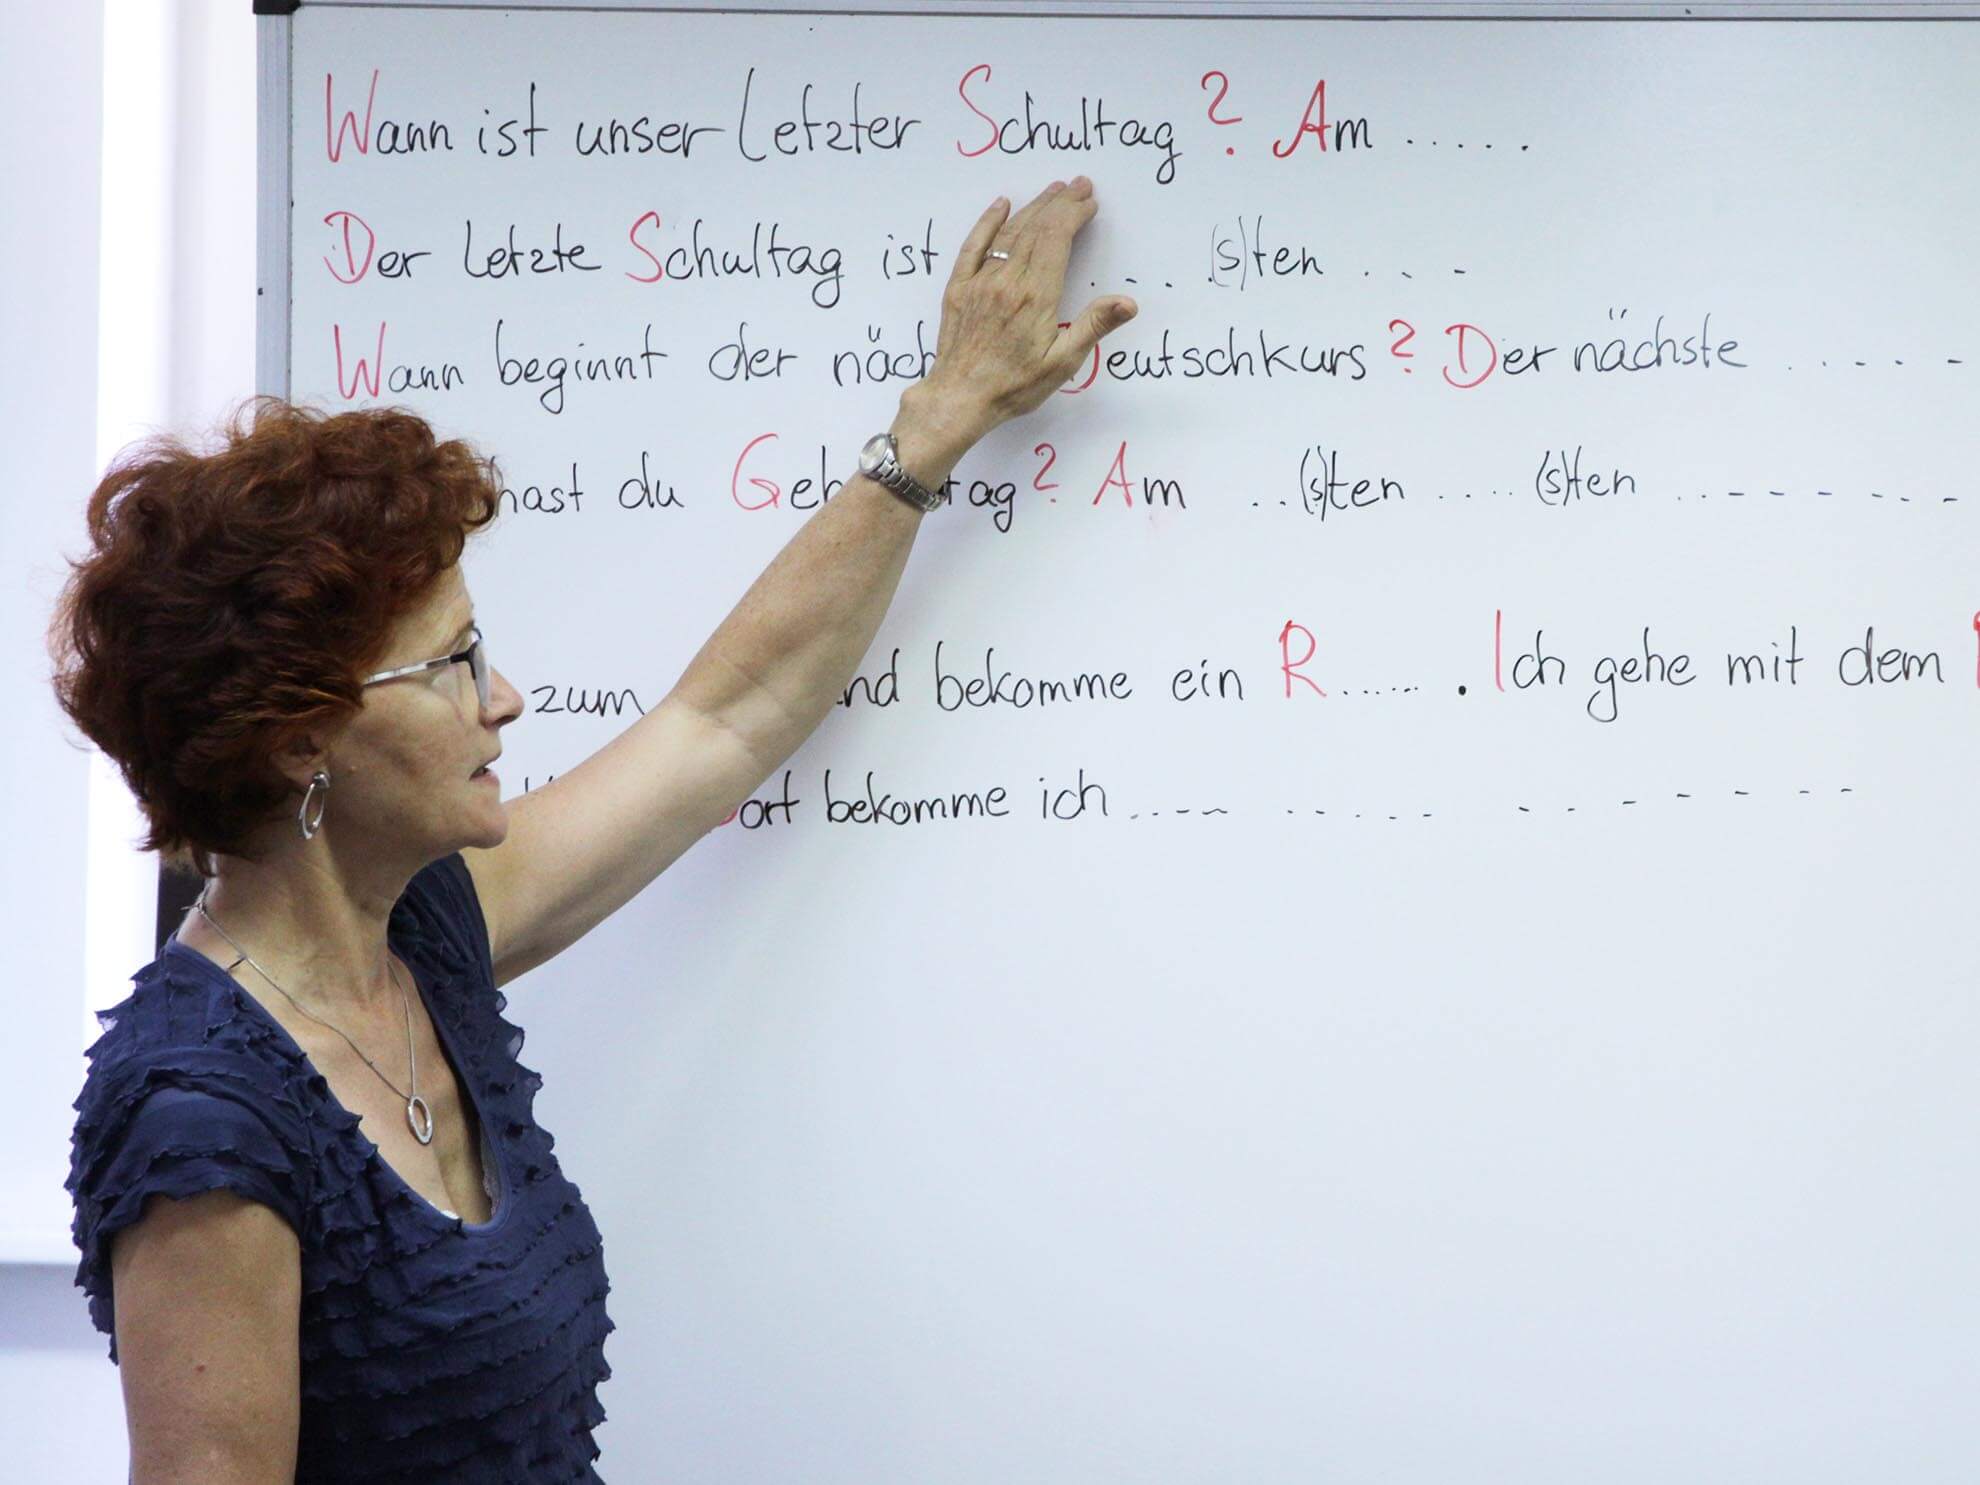 Wann ist unser letzter Schultag? Am .....
Der letzte Schultag ist ... (s)ten ...
Wann beginnt der Deutschkurs? Der nächste .....
hast du ? Am ..(s)ten .... (s)ten .........
zum bekomme ein R....... . Ich gehe mit dem
bekomme ich ..... ..... ........